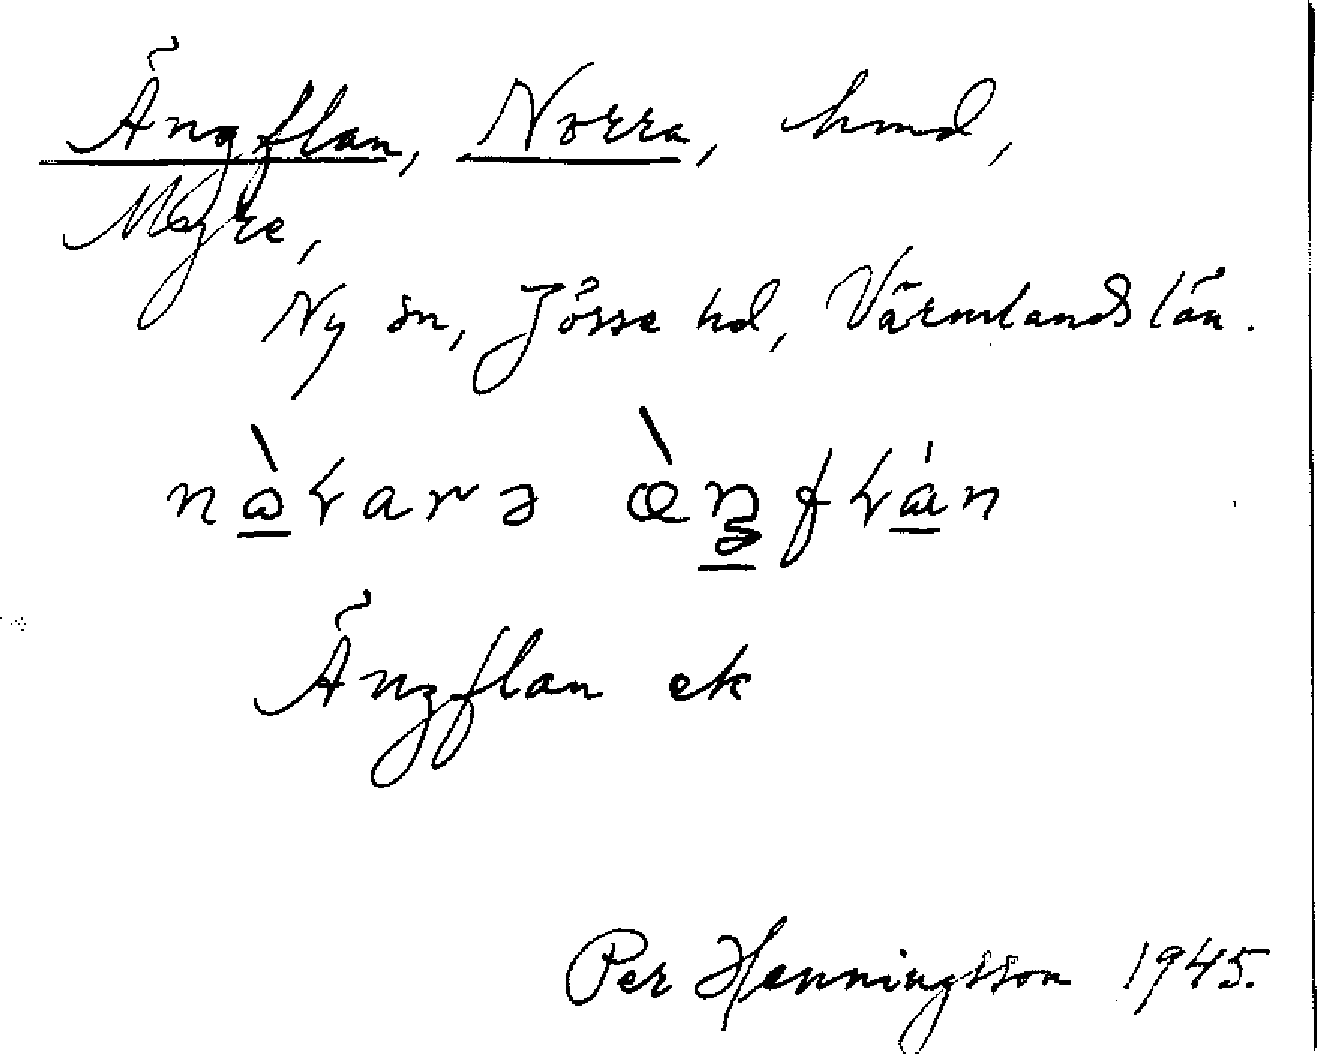 Ängflan, Norra, hmd,
Myre,
Ny sn, Jösse hd, Värmlands län.
Ängflan ek
Per Henningsson 1945.